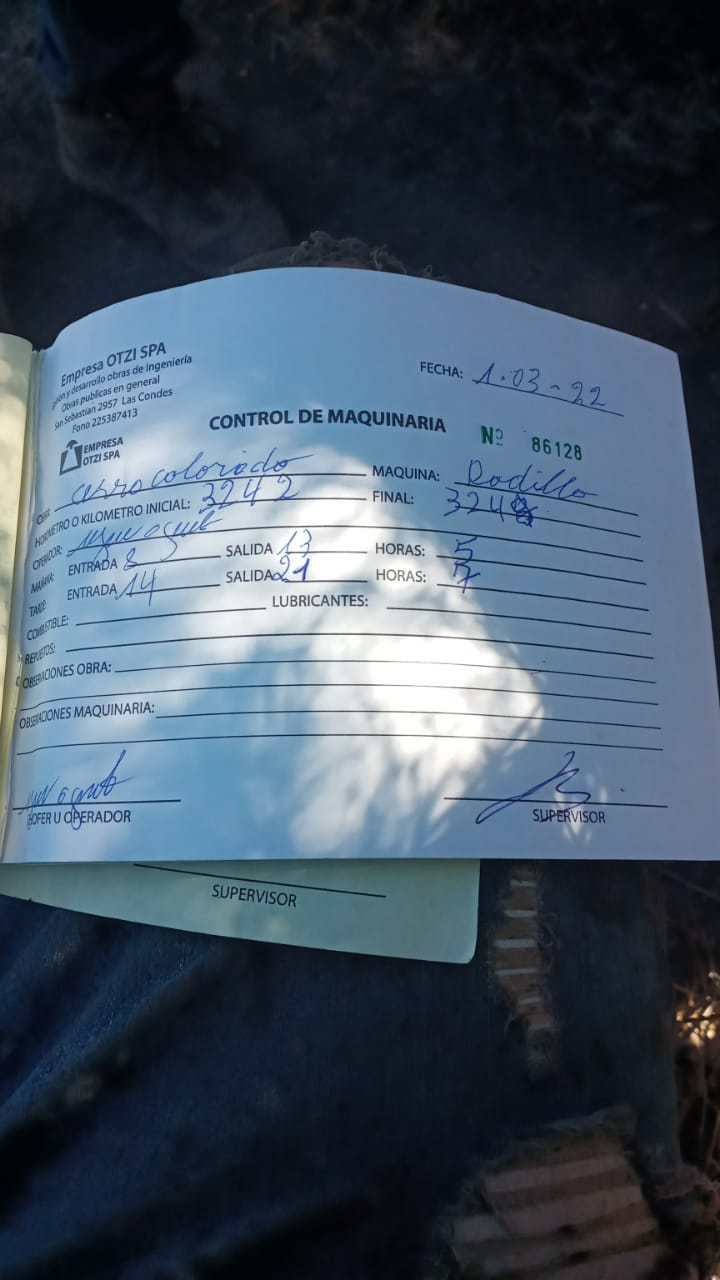 Empresa OTZI SPA
y desarrollo obras de Ingeniería
Obras publicas en general
San Sebastian 2957 Las Condes
Fono 225387413
EMPRESA
OTZI SPA
FECHA: 1.03-22
CONTROL DE MAQUINARIA
Nº 86128
OBRA: cerro colorado MAQUINA: Rodillo
HOROMETRO O KILOMETRO INICIAL: 3242 FINAL: 324
OPERADOR:
MAÑANA: ENTRADA 8 SALIDA 13 HORAS: 5
TARDE: ENTRADA 14 SALIDA 21 HORAS: 7
COMBUSTIBLE: LUBRICANTES:
REPUESTOS:
OBSERVACIONES OBRA:
OBSERVACIONES MAQUINARIA:
HOFER U OPERADOR
SUPERVISOR
SUPERVISOR